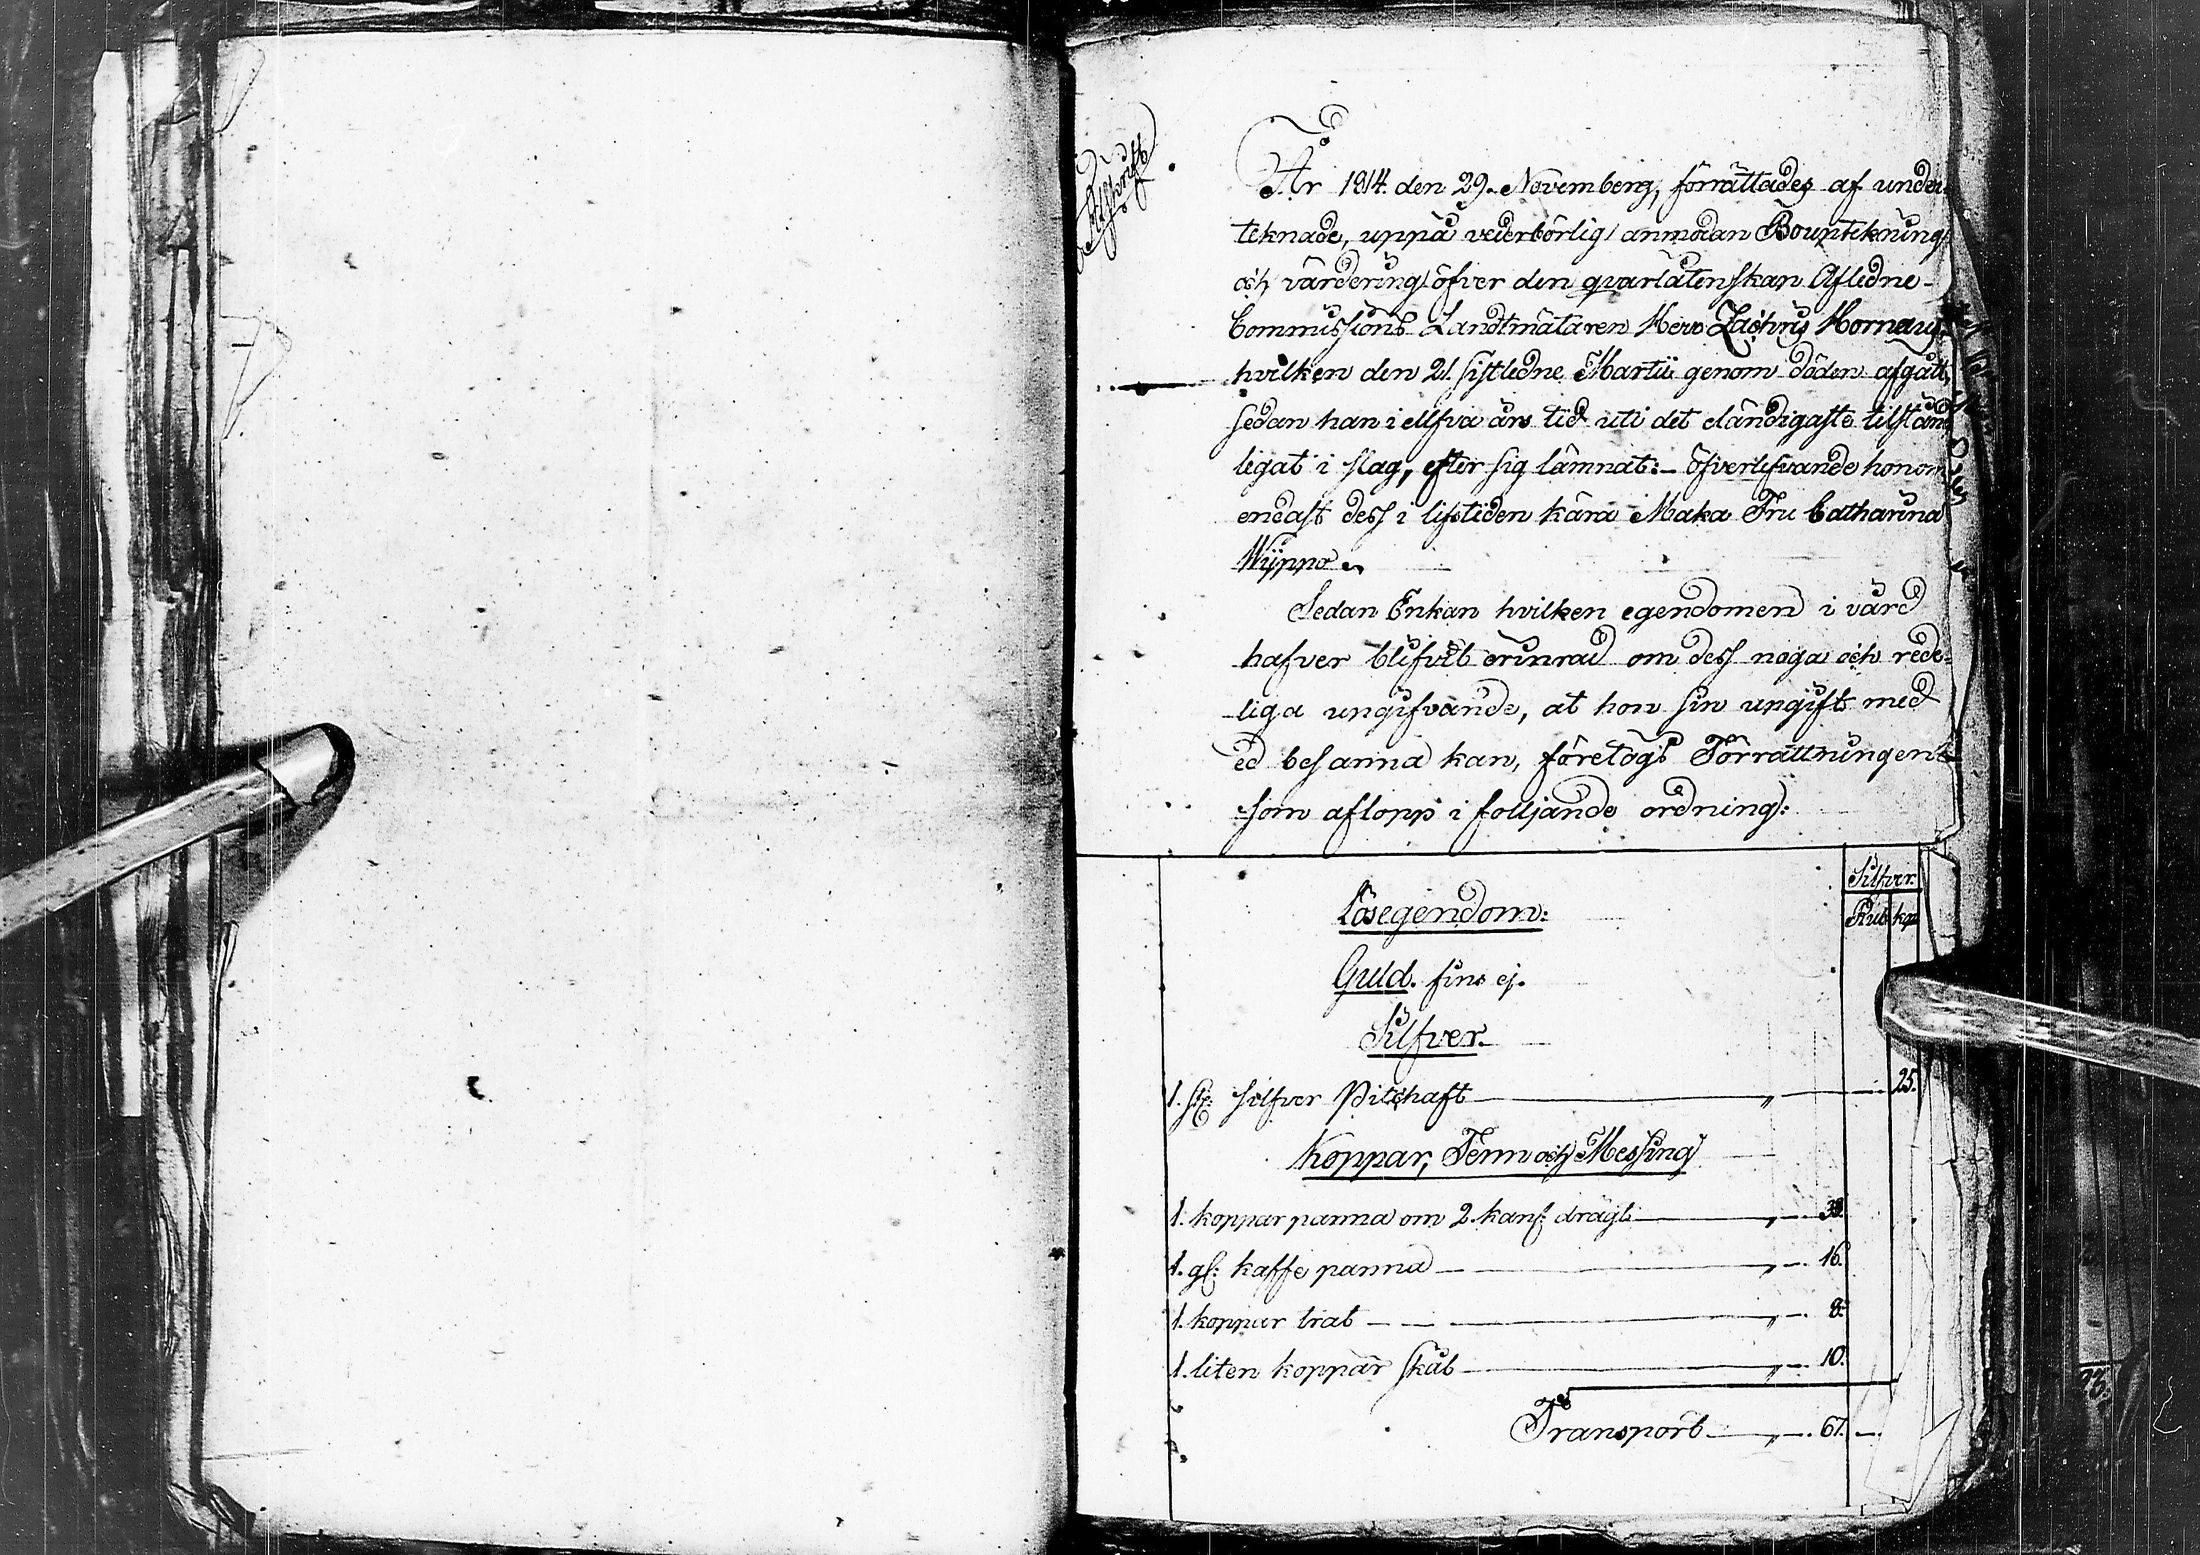 Afskrift
År 1814 den 29. November, förrättades af under-
teknade, uppå vederbörlig anmodan Bouptekning
och värdering öfver den qvarlåtenskan Afledne
Commissions Landtmätaren Herr Zachris Hornæus
hvilken den 21. sistledne Martii genom döden afgått,
sedan han i ellfva års tid uti det eländigaste tilstånd
legat i slag, efter sig lämnat: öfverlefvande honom
endast dess i lifstiden kära Maka Fru Catharina
Wijnno
Sedan Enkan hvilken egendomen i vård
hafver blifvit erinrad om dess noga och rede-
liga ungifvande, at hon sin ungift med
ed besanna kan, företogs Förrättningen
som aflopp i folljande ordning:
Silfver.
Rub kop
Lösegendom:
Guld. fins ej.
Silfver.
1. st: silfver Pitchaft " 25.
Koppar, Tenn och Messing
1. koppar panna om 2. kans: drägt " 33.
1. gl: kaffe panna " 16.
1. koppar trat " 8.
1. liten koppar skål " 10.
Transport " 67.